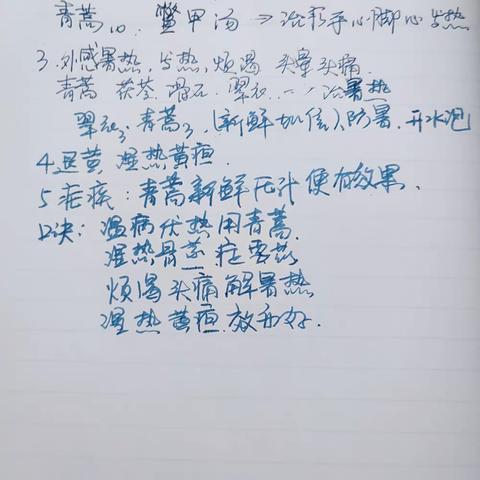 青蒿10. 鳖甲汤→治手心脚心发热
3.外感暑热,发热,烦渴 头晕头痛.
青蒿 茯苓.滑石.翠衣...治暑热
翠衣3.青蒿3,(新鲜加倍)防暑.开水泡
4.退黄,湿热黄疸.
5.疟疾:青蒿新鲜 汁便有效果.
口诀:温病伏热用青蒿.
湿热骨蒸
烦渴头痛解暑热
湿热黄疸.效和好.